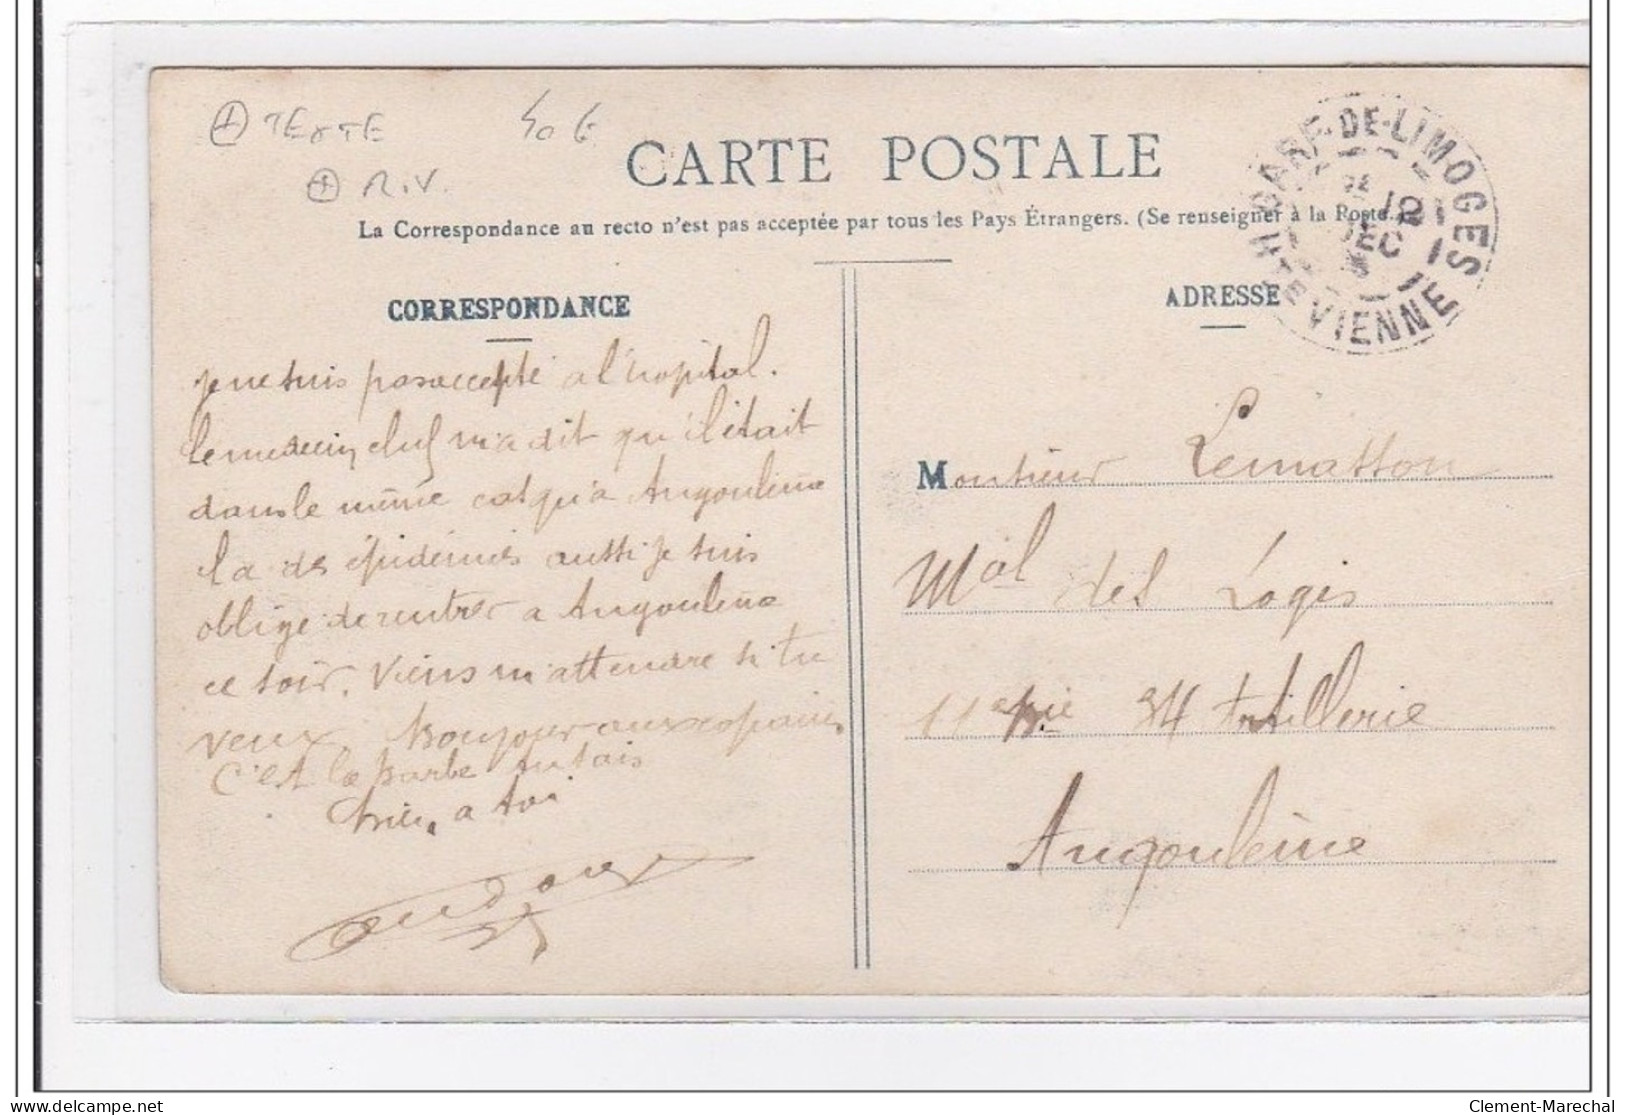 + TEXTE
40 €
+ R.V.
CARTE POSTALE
La Correspondance au recto n'est pas acceptée par tous les Pays Étrangers. (Se renseigner à la Poste.)
GARE-DE-LIMOGES
DEC
HTE VIENNE
CORRESPONDANCE
je ne suis pas accepté a l'hopital.
le medecin chef m'a dit qu'il était
dans le même cas qu'a Angoulème
la des épidemies aussi je suis
oblige de rentrer a Angouleme
ce soir. Viens m'attendre si tu
veux. Bonjour aux copains
C'est la barbe tu sais
bien a toi
ADRESSE
Monsieur Lemasson
Mal des Logis
11e Bie 34 Artillerie
Angoulême
Clement-Marechal